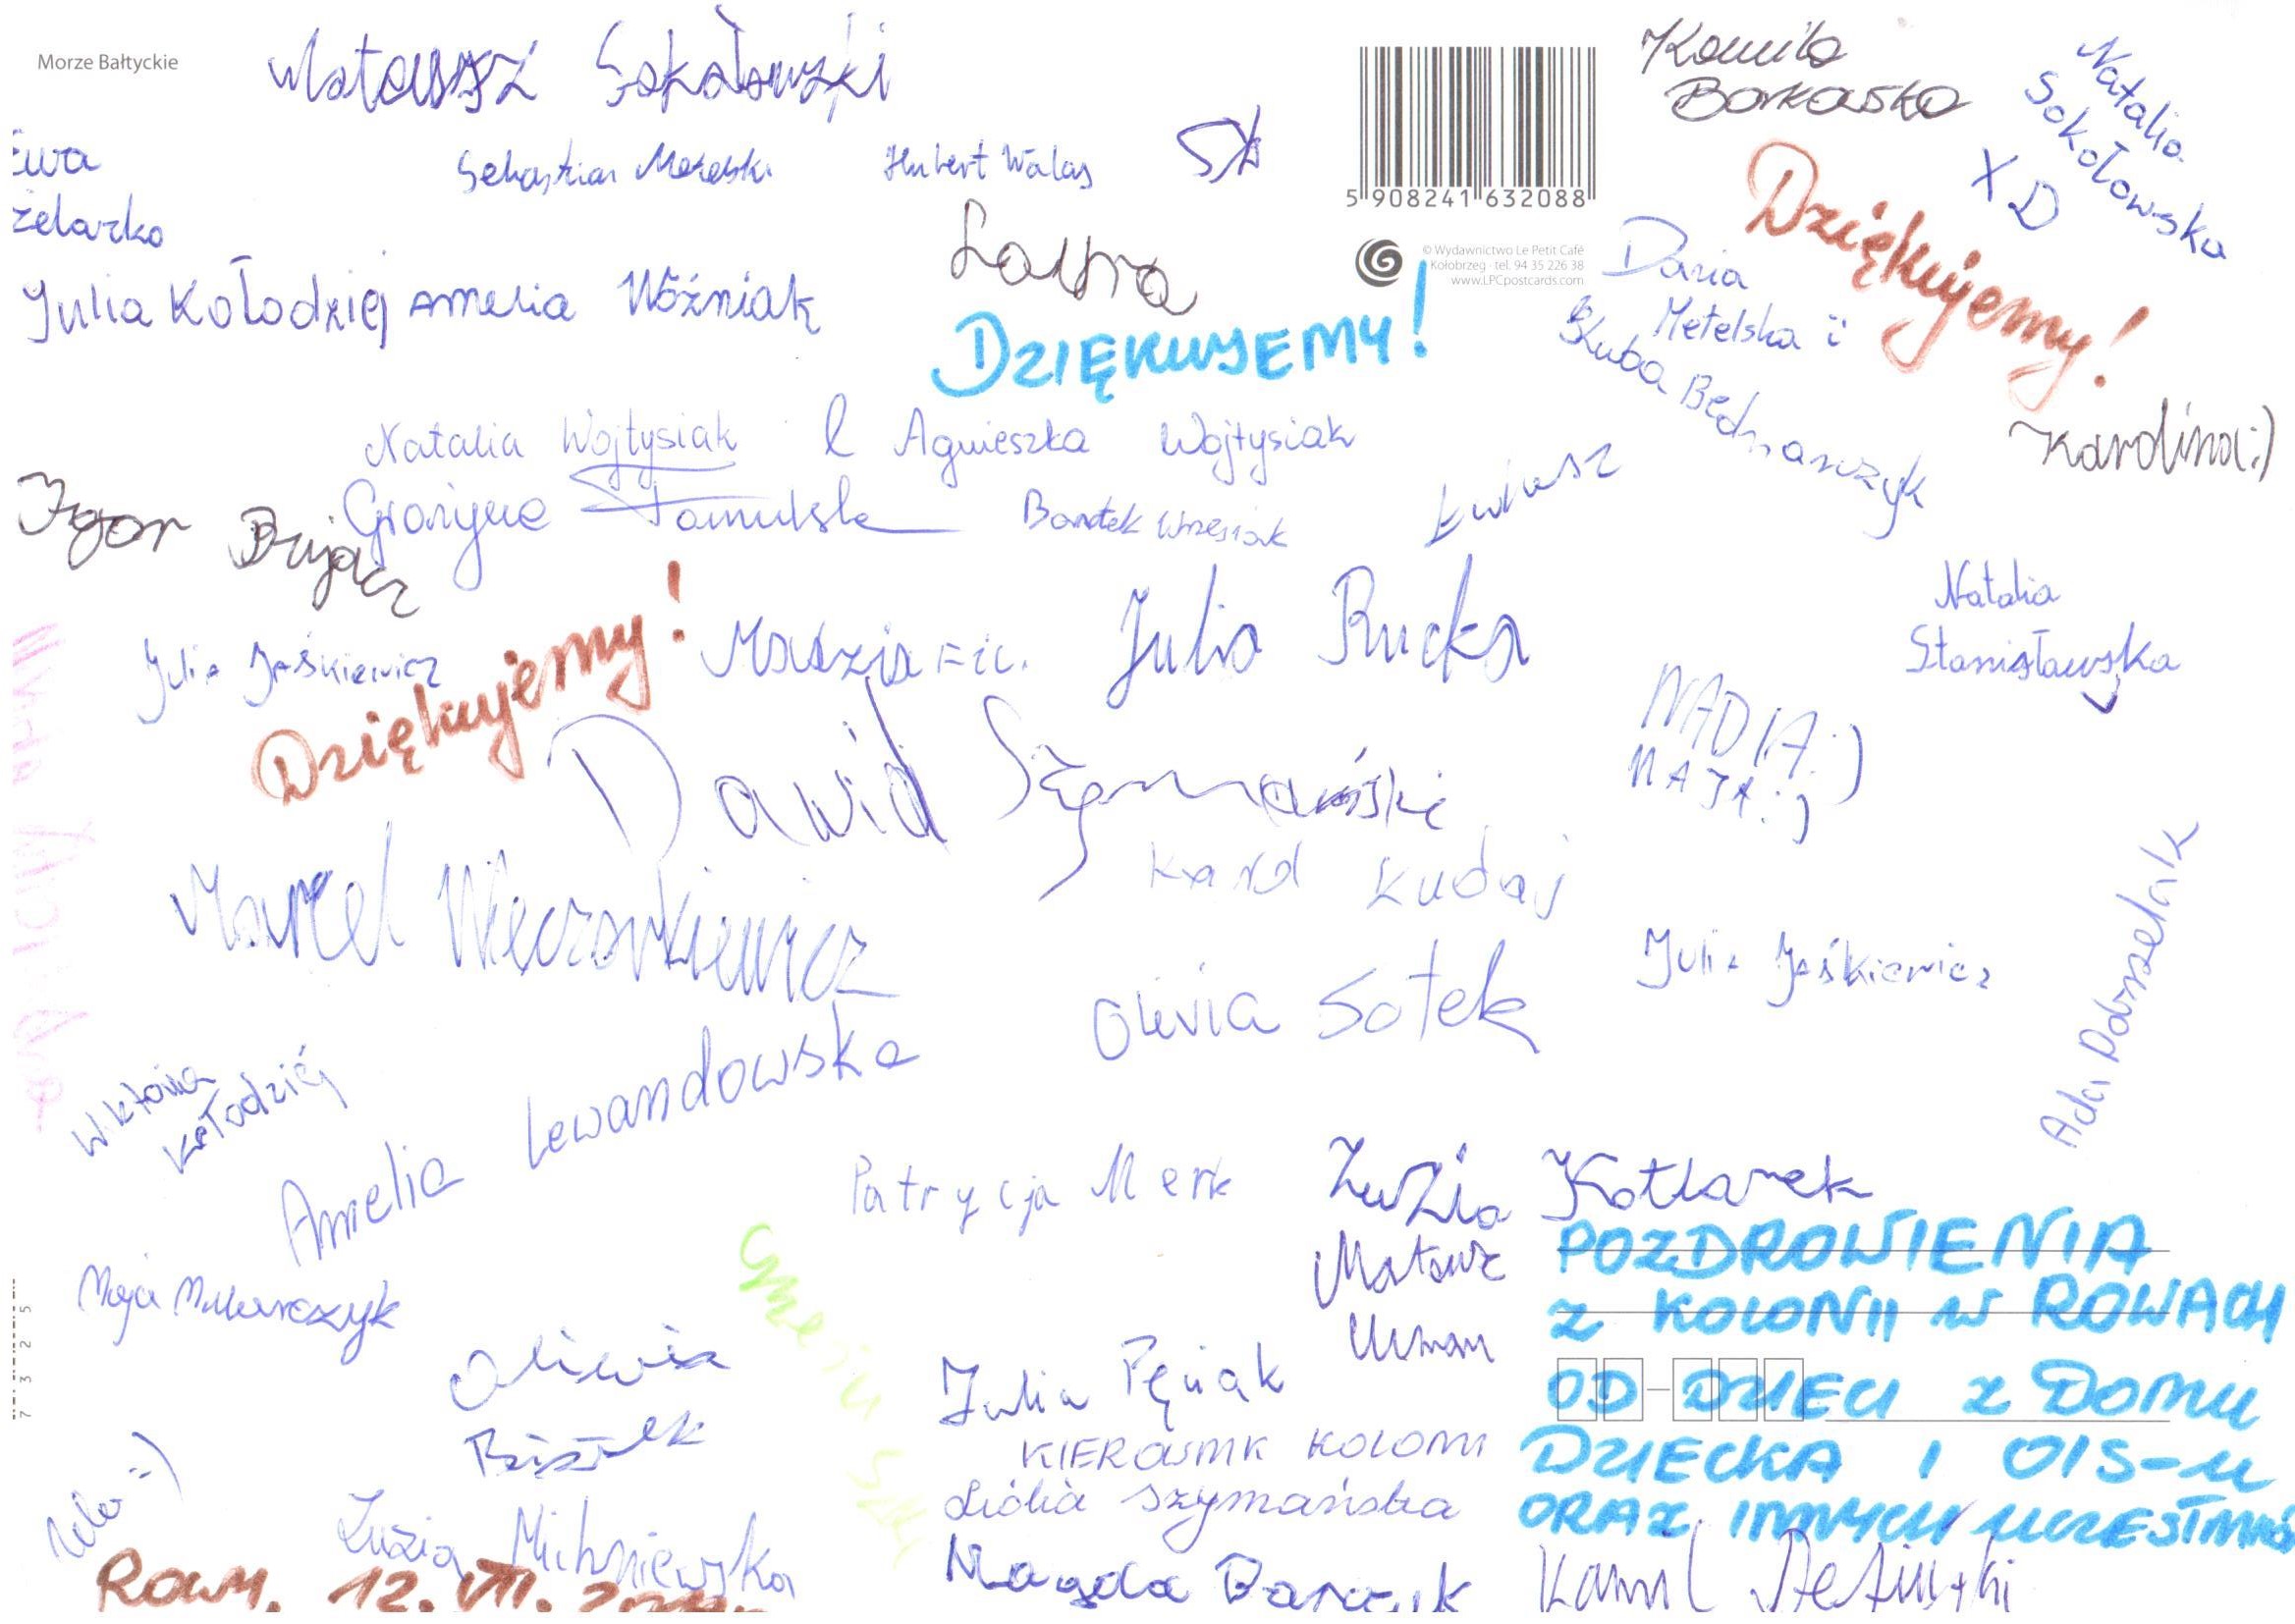 Morze Bałtyckie
Mateusz Sokołowski
Kamila
Natalia
Sokołowska
XD
Ewa
Sebastian
Hubert Walas
5 908241 632088
Dziękujemy!
Laura
© Wydawnictwo Le Petit Café
Kołobrzeg - tel. 94 35 226 38
www.LPCpostcards.com
Daria
Metelska i
Kuba Bednarczyk
Julia Kołodziej Amelia Woźniak
DZIĘKUJEMY!
Karolina:)
Natalia Wojtysiak
Agnieszka Wojtysiak
Igor
Grażyna
Bartek Wrzesiak
Łukasz
Natalia
Stanisławska
Julia Jaśkiewicz
Dziękujemy!
Madzia
Julia Rucka
NADIA:)
MAJA:)
Dawid Szymański
Karol Kudaj
Marcel Wieczorkiewicz
Julia Jaśkiewicz
Olivia Sotek
Wiktoria
Kołodziej
Amelia Lewandowska
Ada
Patrycja Merk
Zuzia Kotlarek
Mateusz
Maja
POZDROWIENIA
z KOLONII w ROWACH
OD DZIECI z DOMU
DZIECKA I OIS-u
ORAZ INNYCH UCZESTNIKÓW
Oliwia
Julia Pęziak
KIEROWNIK KOLONII
Lidia Szymańska
Zuzia Michniewska
Magda
Kamil
Rowy. 12.VII.
7 3 2 5